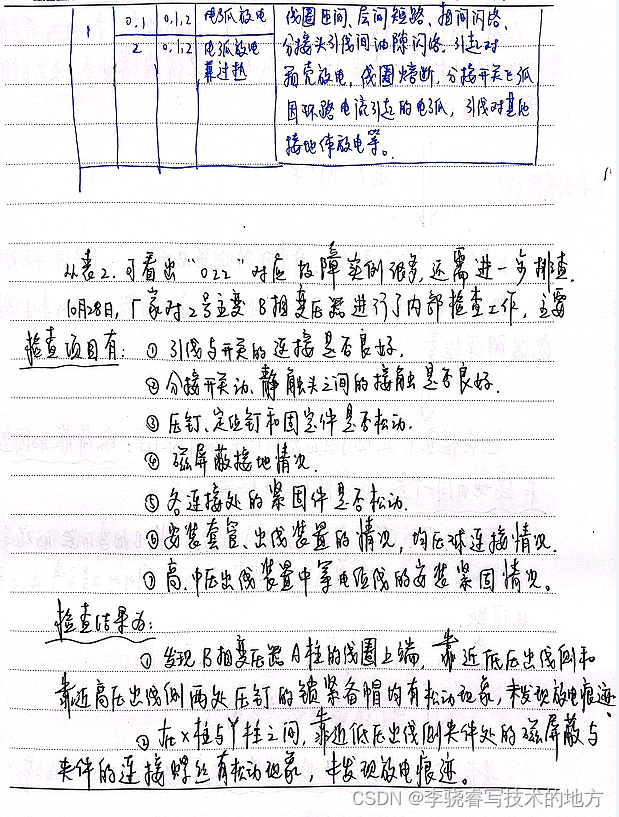 1 0,1 0,1,2 电弧放电 线圈匝间、层间短路、相间闪络、
2 0,1,2 电弧放电 分接头引线间油隙闪络、引起对
兼过热 箱壳放电,线圈熔断,分接开关飞弧
因环路电流引起的电弧,引线对其他
接地体放电等。
从表2.可看出“022”对应故障实例很多,还需进一步排查.
10月28日,厂家对2号主变B相变压器进行了内部检查工作,主要
检查项目有: ① 引线与开关的连接是否良好.
② 分接开关动、静触头之间的接触是否良好.
③ 压钉、定位钉和固定件是否松动.
④ 磁屏蔽接地情况.
⑤ 各连接处的紧固件是否松动.
⑥ 安装套管、出线装置的情况,均压球连接情况.
⑦ 高、中压出线装置中等电位线的安装紧固情况。
检查结果为:
① 发现B相变压器A柱的线圈上端,靠近低压出线侧和
靠近高压出线侧两处压钉的锁紧备帽均有松动现象,未发现放电痕迹.
② 在X柱与Y柱之间,靠近低压出线侧夹件处的磁屏蔽与
夹件的连接螺丝有松动现象,未发现放电痕迹。
CSDN @李骁睿写技术的地方